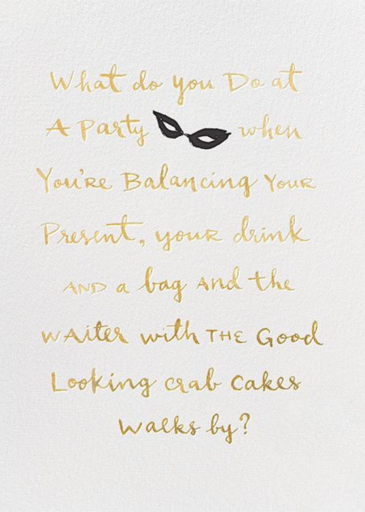 What do you Do at
A Party when
You're Balancing Your
Present, your drink
AND a bag And the
waiter with THE Good
Looking crab cakes
walks by?